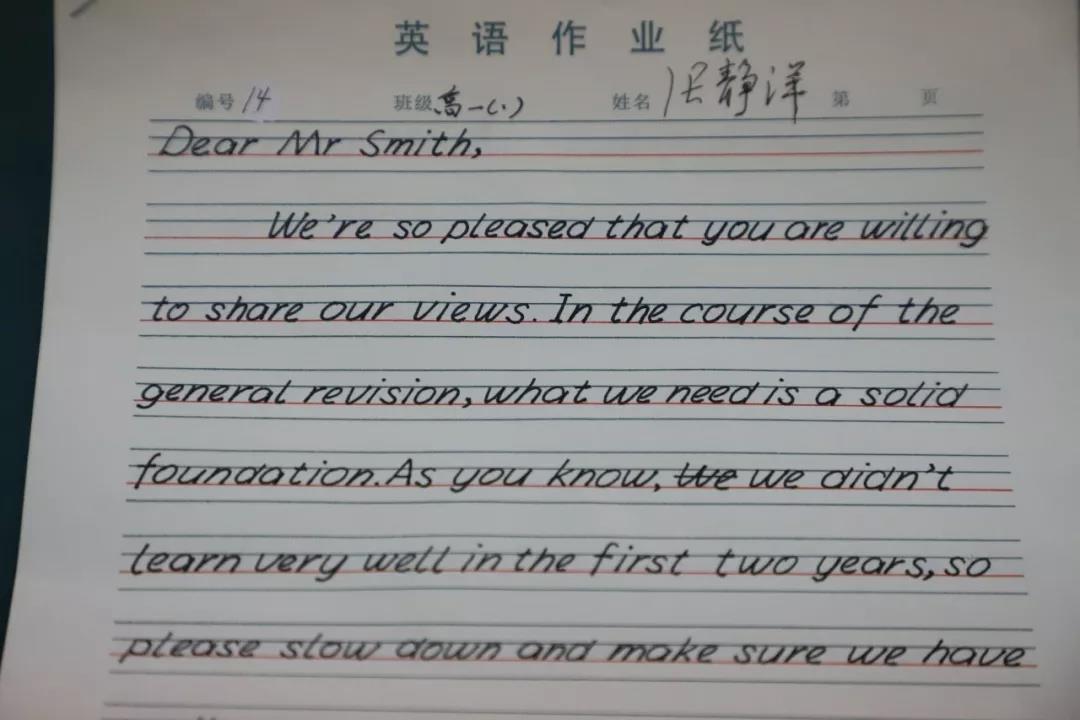 英语作业纸
编号 14 班级 高一(1) 姓名 张静洋 第 页
Dear Mr Smith,
We're so pleased that you are willing
to share our views. In the course of the
general revision, what we need is a solid
foundation. As you know, We we didn't
learn very well in the first two years, so
please slow down and make sure we have